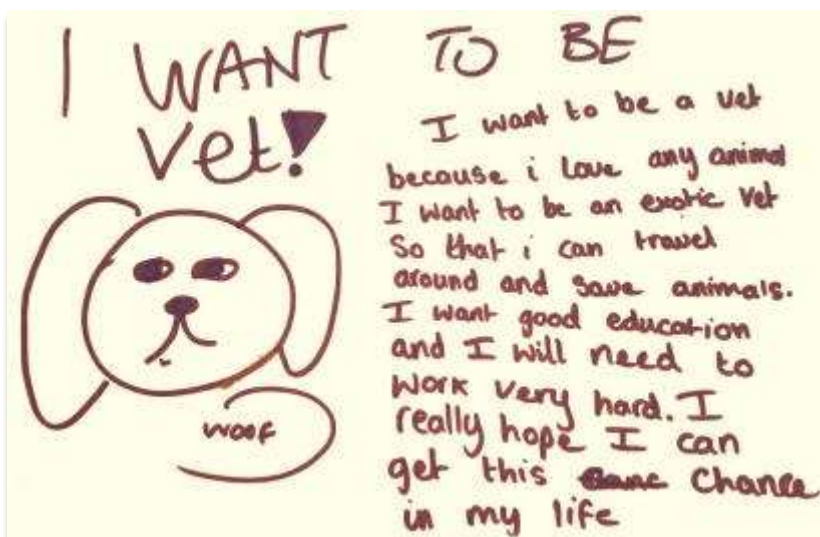 I WANT TO BE
Vet!
I want to be a vet
because i love any animal
I want to be an exotic vet
So that i can travel
around and save animals.
I want good education
and I will need to
work very hard. I
really hope I can
get this chance
in my life
woof